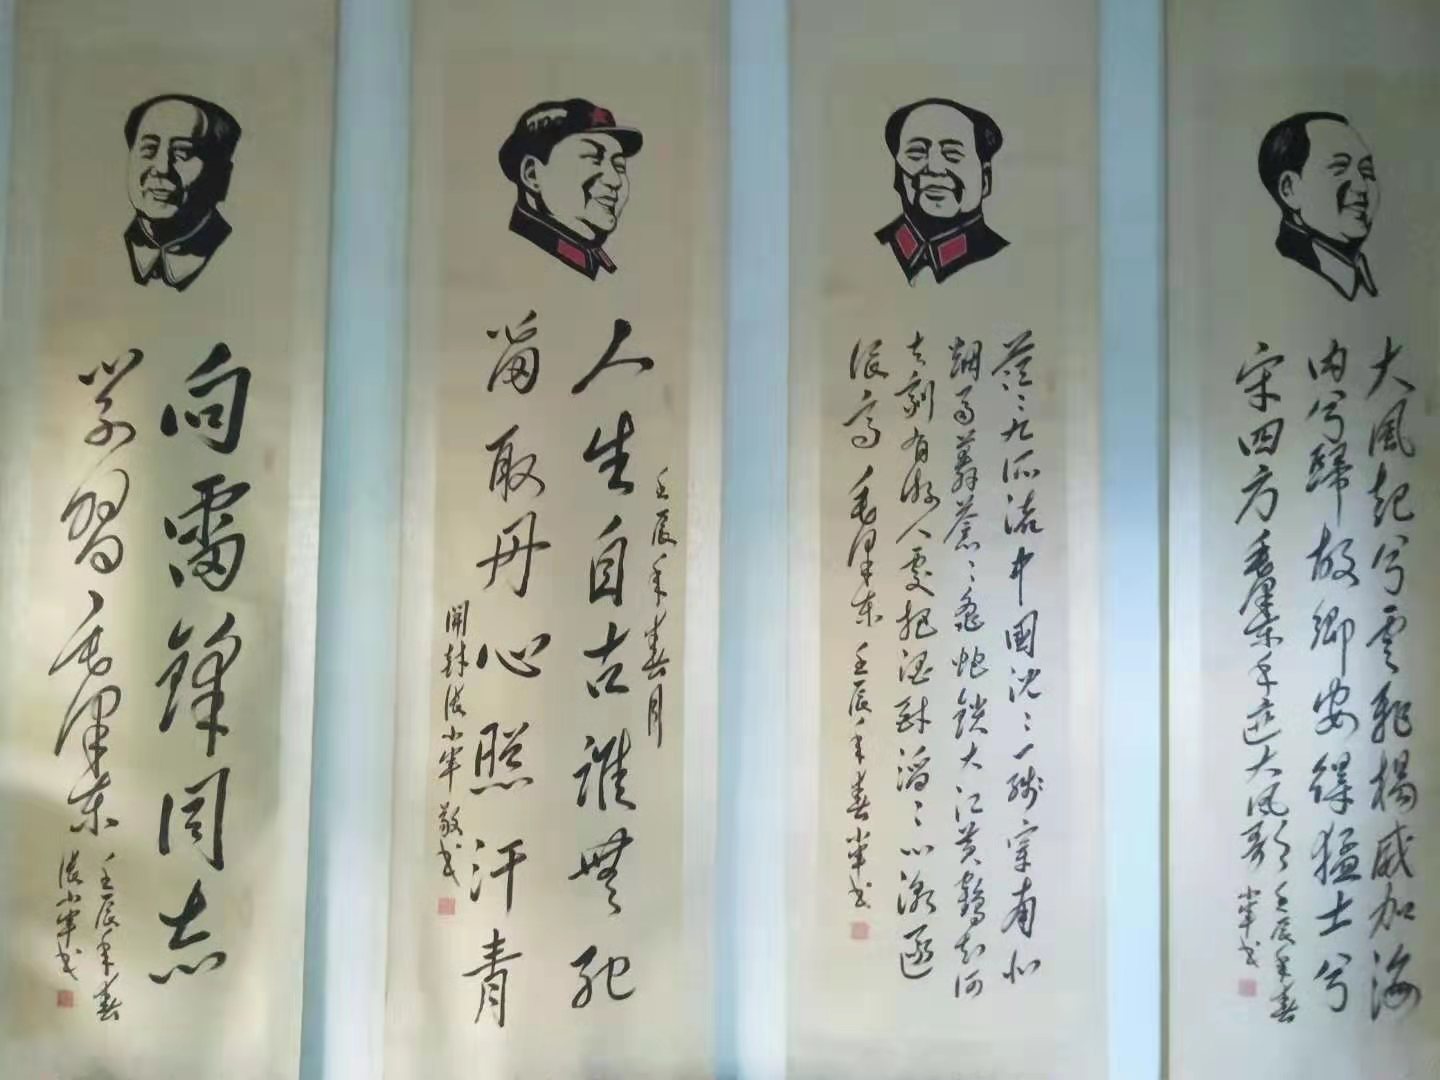 大風起兮雲飛揚威加海
内兮歸故鄉安得猛士兮
守四方 毛澤东手迹大风歌
壬辰年春
书
茫茫九派流中国沈沈一线穿南北
烟雨莽苍苍龟蛇鎖大江黄鹤知何
去剩有游人处把酒酹滔滔心潮逐
浪高 毛泽东 壬辰年春 书
壬辰年春月
人生自古誰無死
留取丹心照汗青
開封张小 敬书
向雷锋同志
学習 毛泽东
壬辰年春
张小 书